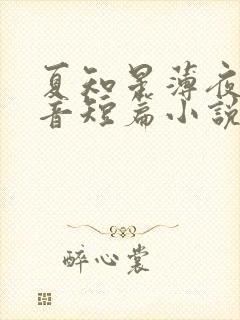 夏知星薄夜
音短篇小說
醉心裳